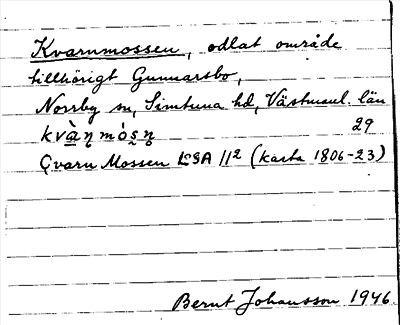 Kvarnmossen, odlat område
tillhörigt Gunnarsbo,
Norrby sn, Simtuna hd, Västmanl. län
kvà̱ɳmòsn̥ 29
Qvarn Mossen LSA 11² (karta 1806-23)
Bernt Johansson 1946